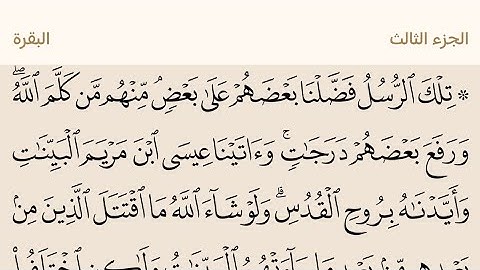 الجزء الثالث
البقرة
* تِلْكَ ٱلرُّسُلُ فَضَّلْنَا بَعْضَهُمْ عَلَىٰ بَعْضٍ مِّنْهُم مَّن كَلَّمَ ٱللَّهُ ۖ
وَرَفَعَ بَعْضَهُمْ دَرَجَٰتٍ ۚ وَءَاتَيْنَا عِيسَى ٱبْنَ مَرْيَمَ ٱلْبَيِّنَٰتِ
وَأَيَّدْنَٰهُ بِرُوحِ ٱلْقُدُسِ ۗ وَلَوْ شَآءَ ٱللَّهُ مَا ٱقْتَتَلَ ٱلَّذِينَ مِنۢ
بَعْدِهِم مِّنۢ بَعْدِ مَا جَآءَتْهُمُ ٱلْبَيِّنَٰتُ وَلَٰكِنِ ٱخْتَلَفُوا۟